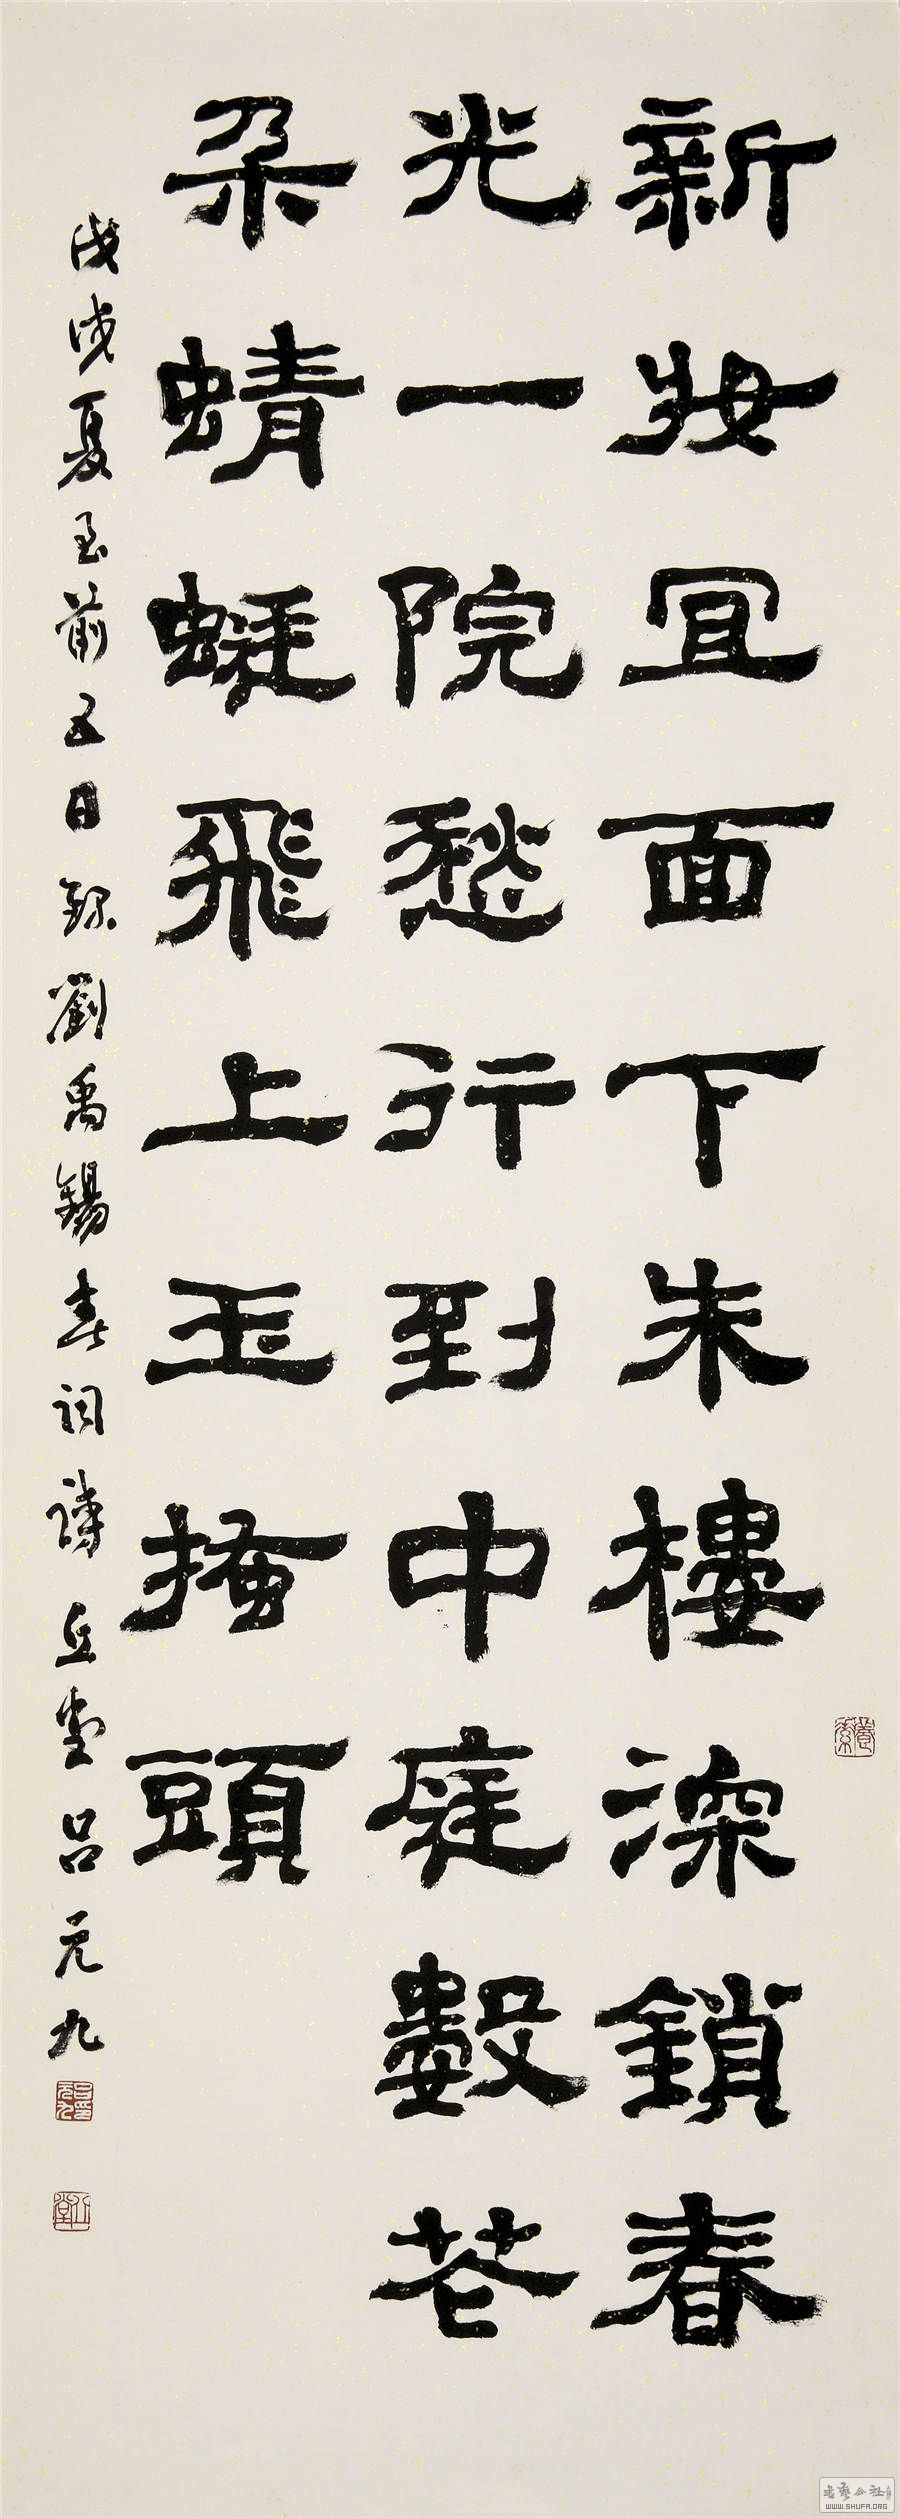 新妝宜面下朱樓深鎖春
光一院愁行到中庭數花
朵蜻蜓飛上玉搔頭
戊戌夏至前五日錄劉禹錫春詞詩丘堂呂元九
書藝公社
WWW.SHUFA.ORG